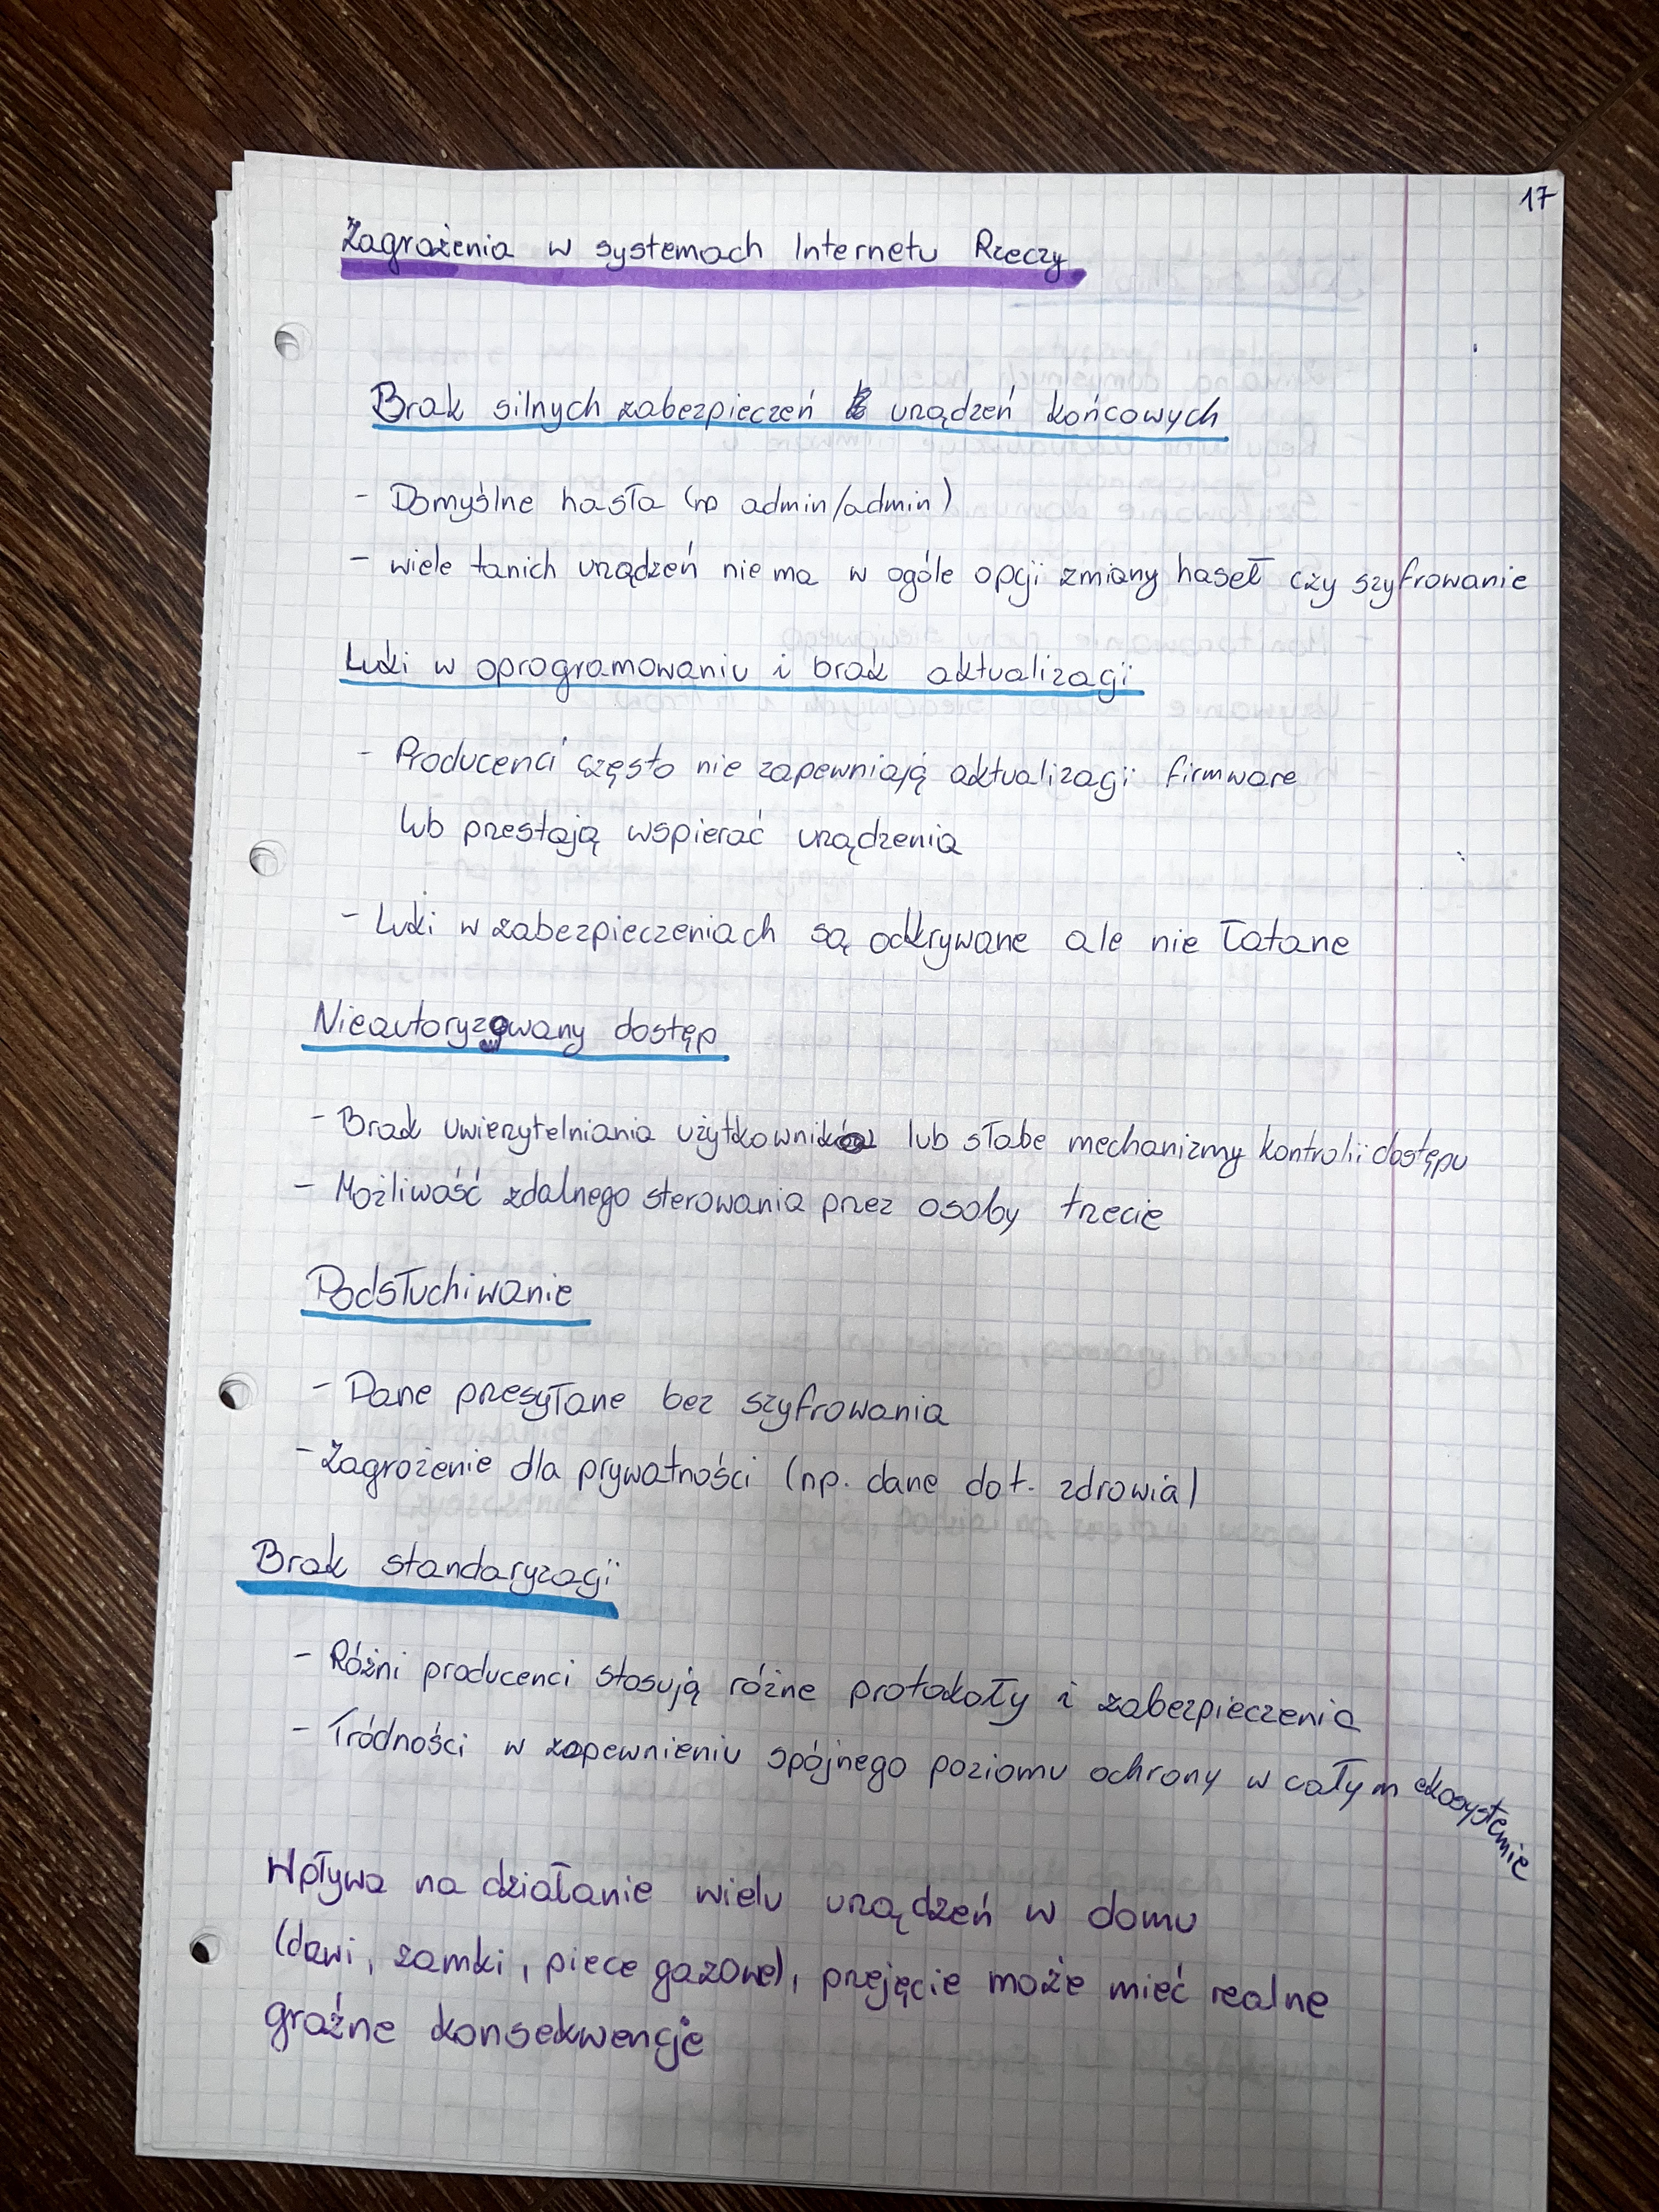 17
Zagrożenia w systemach Internetu Rzeczy
Brak silnych zabezpieczeń urządzeń końcowych
- Domyślne hasła (np admin/admin)
- wiele tanich urządzeń nie ma w ogóle opcji zmiany haseł czy szyfrowanie
Luki w oprogramowaniu i brak aktualizacji
- Producenci często nie zapewniają aktualizacji firmware
lub przestają wspierać urządzenia
- Luki w zabezpieczeniach są odkrywane ale nie łatane
Nieautoryzowany dostęp
- Brak uwierzytelniania użytkowników lub słabe mechanizmy kontrolii dostępu
- Możliwość zdalnego sterowania przez osoby trzecie
Podsłuchiwanie
- Dane przesyłane bez szyfrowania
- Zagrożenie dla prywatności (np. dane dot. zdrowia)
Brak standaryzacji
- Różni producenci stosują różne protokoły i zabezpieczenia
- Tródności w zapewnieniu spójnego poziomu ochrony w całym ekosystemie
Wpływa na działanie wielu urządzeń w domu
(dzwi, zamki, piece gazowe), przejęcie może mieć realne
groźne konsekwencje